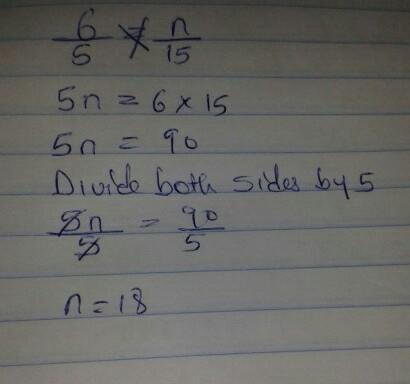 6/5 = n/15
5n = 6 × 15
5n = 90
Divide both sides by 5
5n/5 = 90/5
n = 18